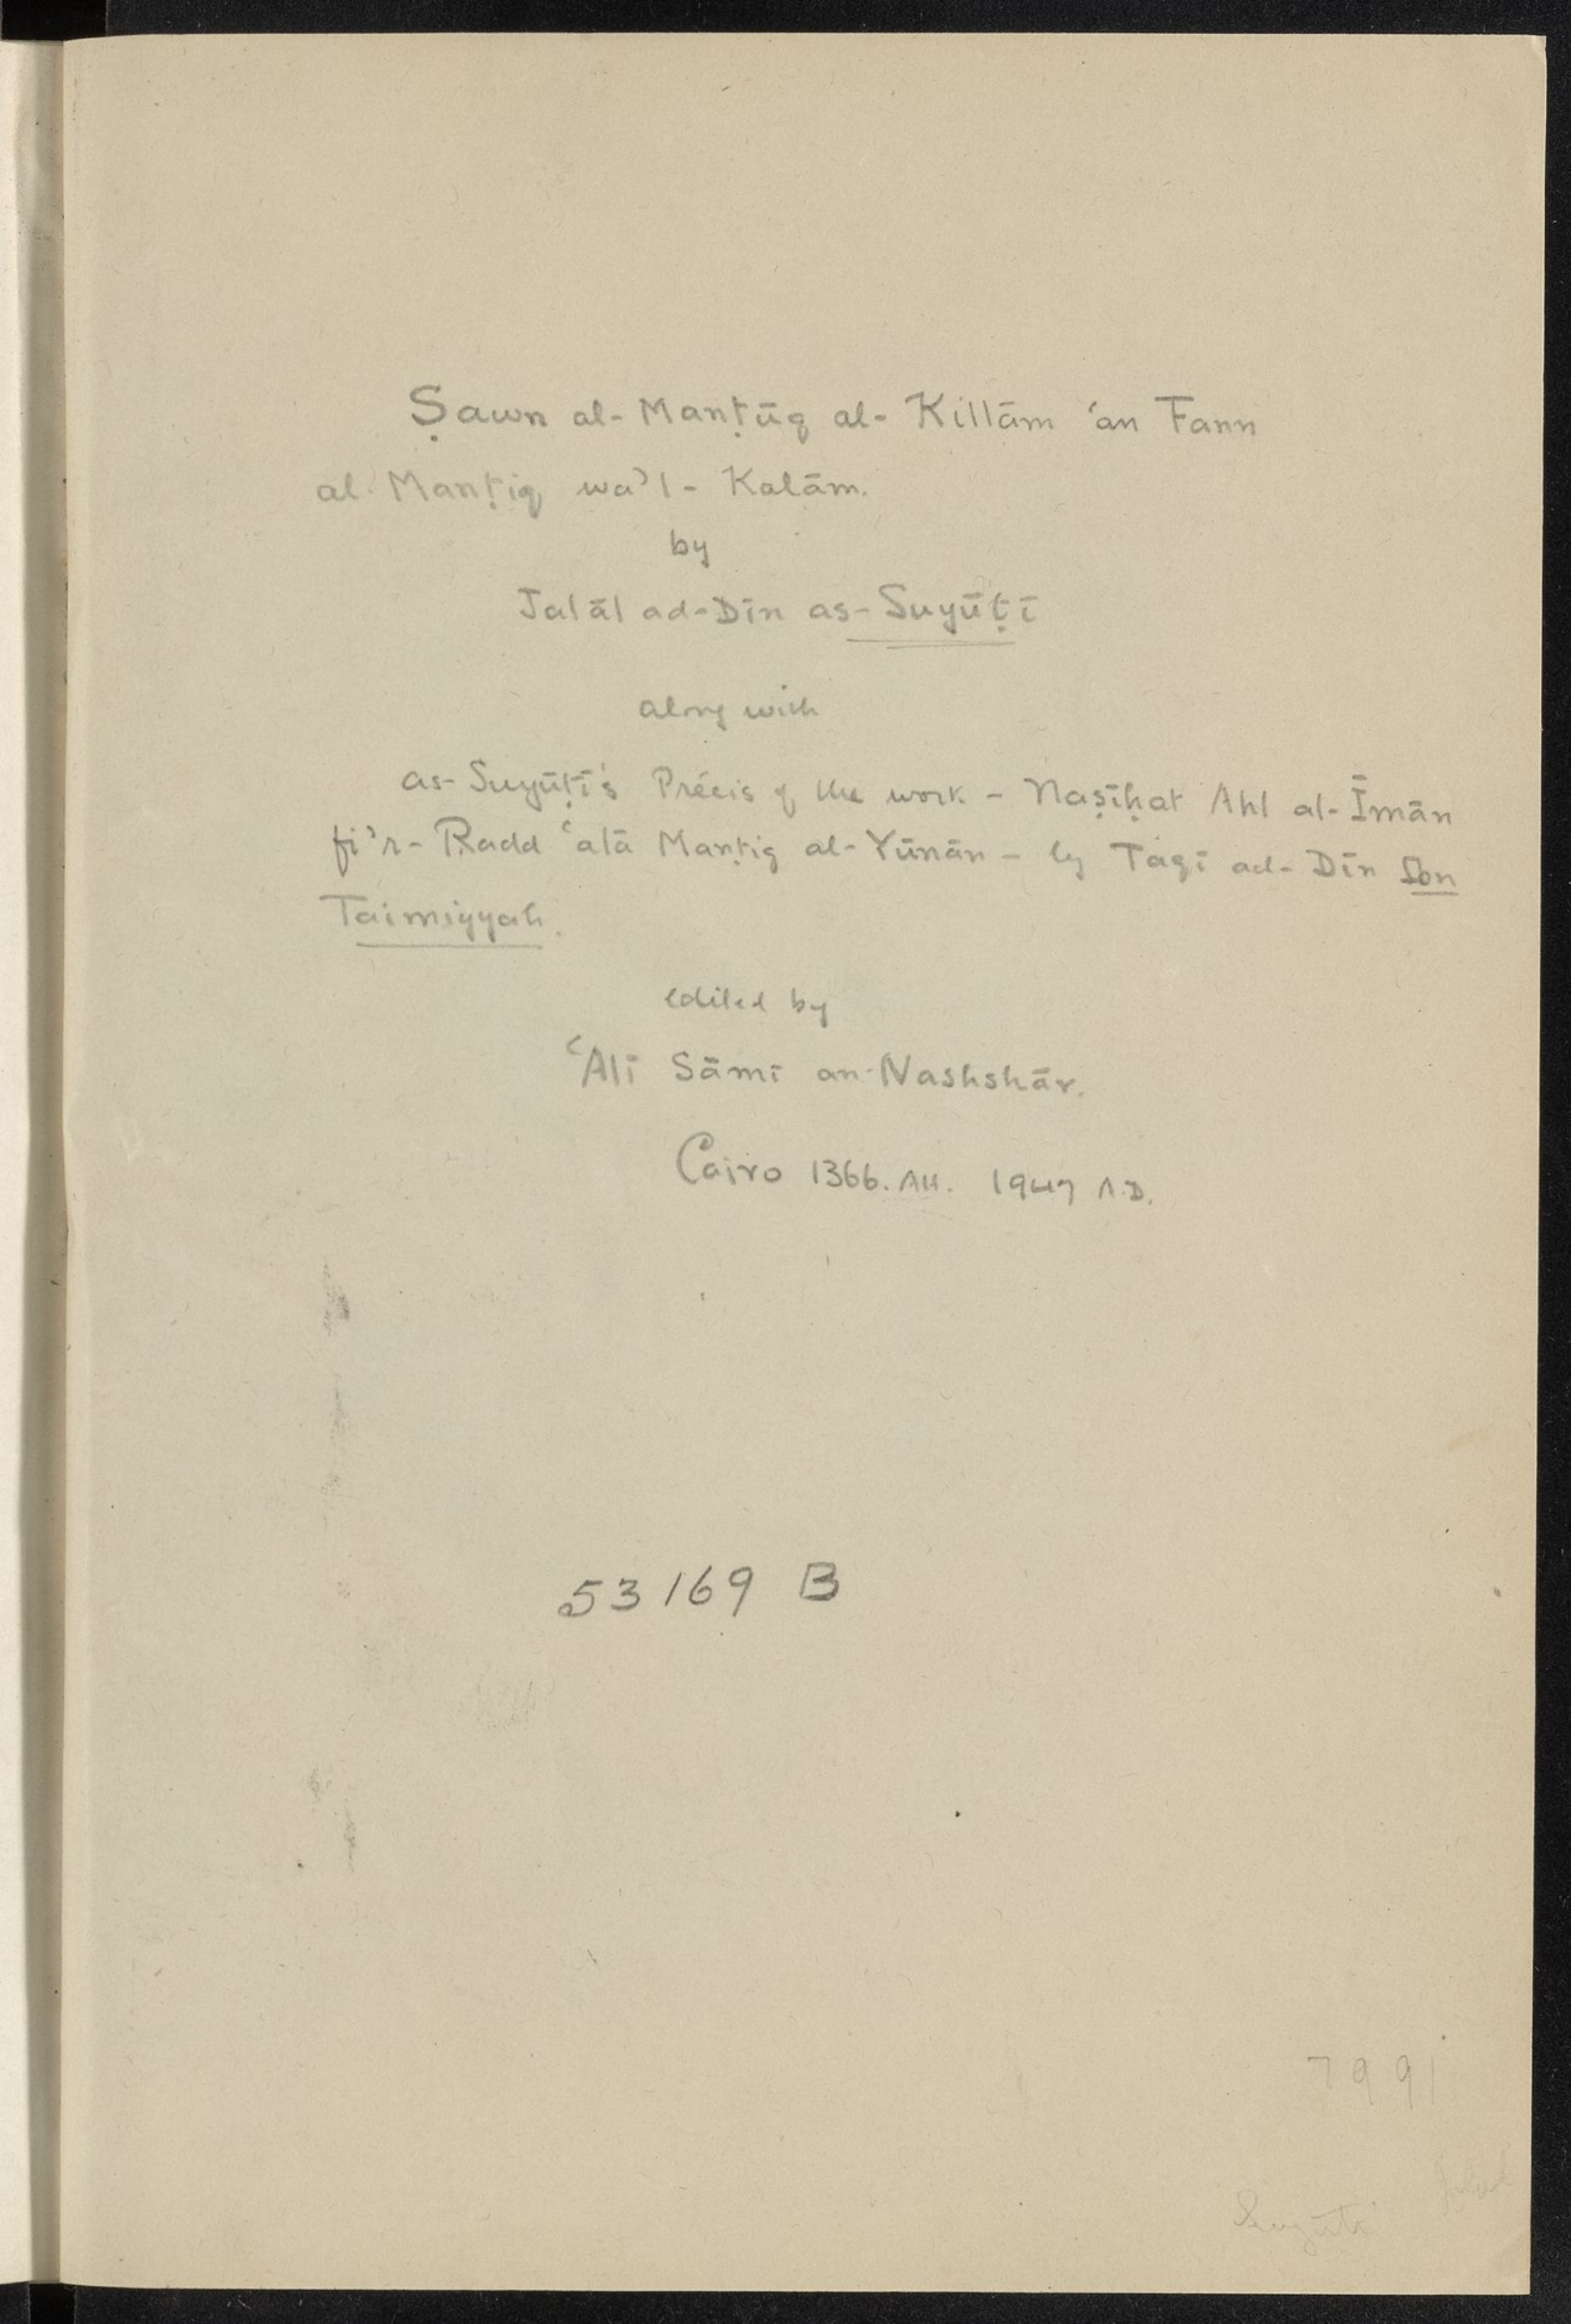 Ṣawn al-Manṭūq al-Killām ʿan Fann
al-Manṭiq wa’l-Kalām.
by
Jalāl ad-Dīn as-Suyūṭī
along with
as-Suyūṭī's Précis of the work - Naṣīḥat Ahl al-Īmān
fi’r-Radd ʿalā Manṭiq al-Yūnān - by Taqī ad-Dīn Ibn
Taimiyyah.
edited by
ʿAlī Sāmī an-Nashshār.
Cairo 1366. AH. 1947 A.D.
53169 B
7991
Suyūṭī